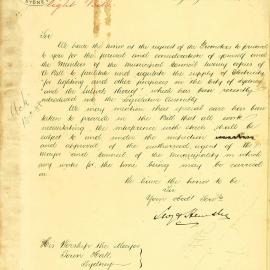 SYDNEY
Sir
We have the honor at the request of the Promoters to forward
to you for the perusal and consideration of yourself and
the Members of the Municipal Council two copies of
A Bill to facilitate and regulate the supply of Electricity
for lighting and other purposes in the City of Sydney
and the suburbs thereof which has been recently
introduced into the Legislative Assembly
We may mention that special care has been
taken to provide in the Bill that all work
the interference with streets shall be
subject to and under the
and approval of the authorized agent of the
Mayor and Council of the Municipality in which
any works for the time being may be carried
on
We have the honor to be
Sir
Your obedt Servts
His Worship the Mayor
Town Hall
Sydney